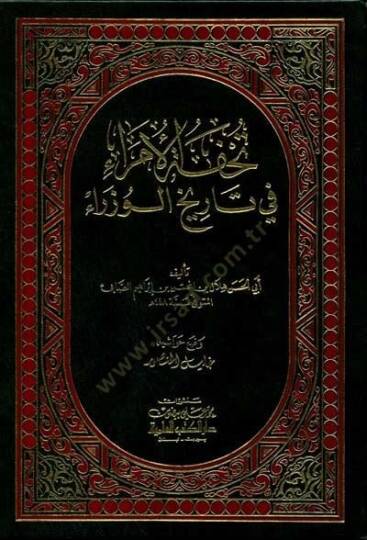 تحفة الأمراء
في تاريخ الوزراء
تأليف
أبي الحسن هلال بن المحسن بن إبراهيم الصابي
المتوفى سنة ٤٤٨هـ
وضع حواشيه
خليل المنصور
منشورات
محمد علي بيضون
دار الكتب العلمية
بيروت - لبنان
www.irsad.com.tr